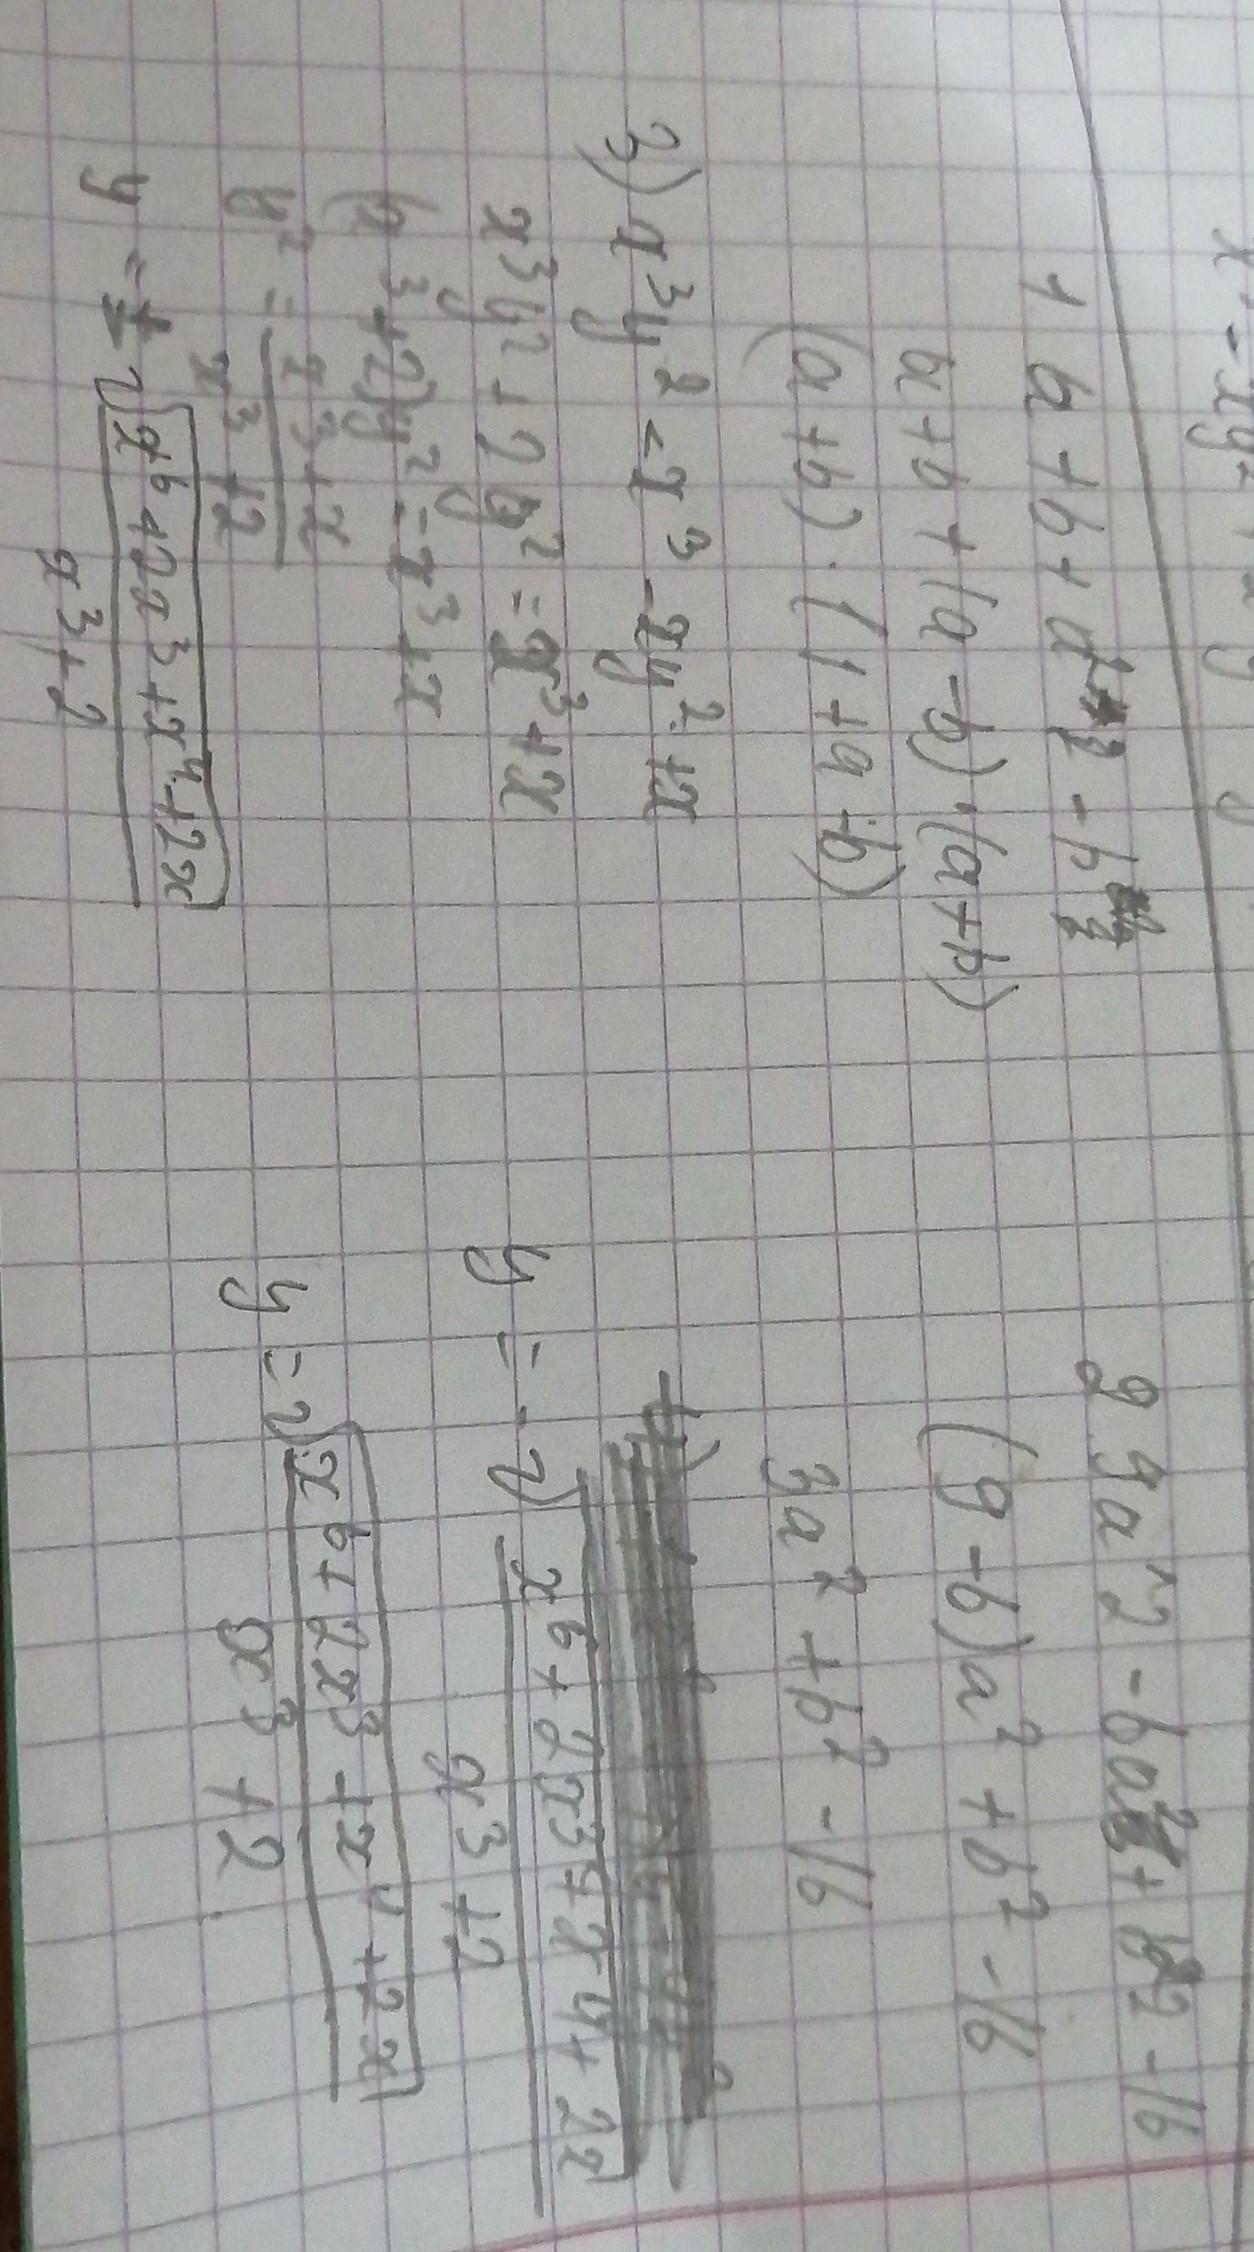 1 a + b + a² - b²
a + b + (a - b) · (a + b)
(a + b) · (1 + a - b)
3) x³y² = x³ - 2y² + x
x³y² + 2y² = x³ + x
(x³ + 2)y² = x³ + x
y² = x³ + x / x³ + 2
y = ± √x⁶ + 2x³ + x⁴ + 2x / x³ + 2
2 9a^2 - 6a² + b² - 16
(9 - 6)a² + b² - 16
3a² + b² - 16
y = - √x⁶ + 2x³ + x⁴ + 2x / x³ + 2
y = √x⁶ + 2x³ + x⁴ + 2x / x³ + 2